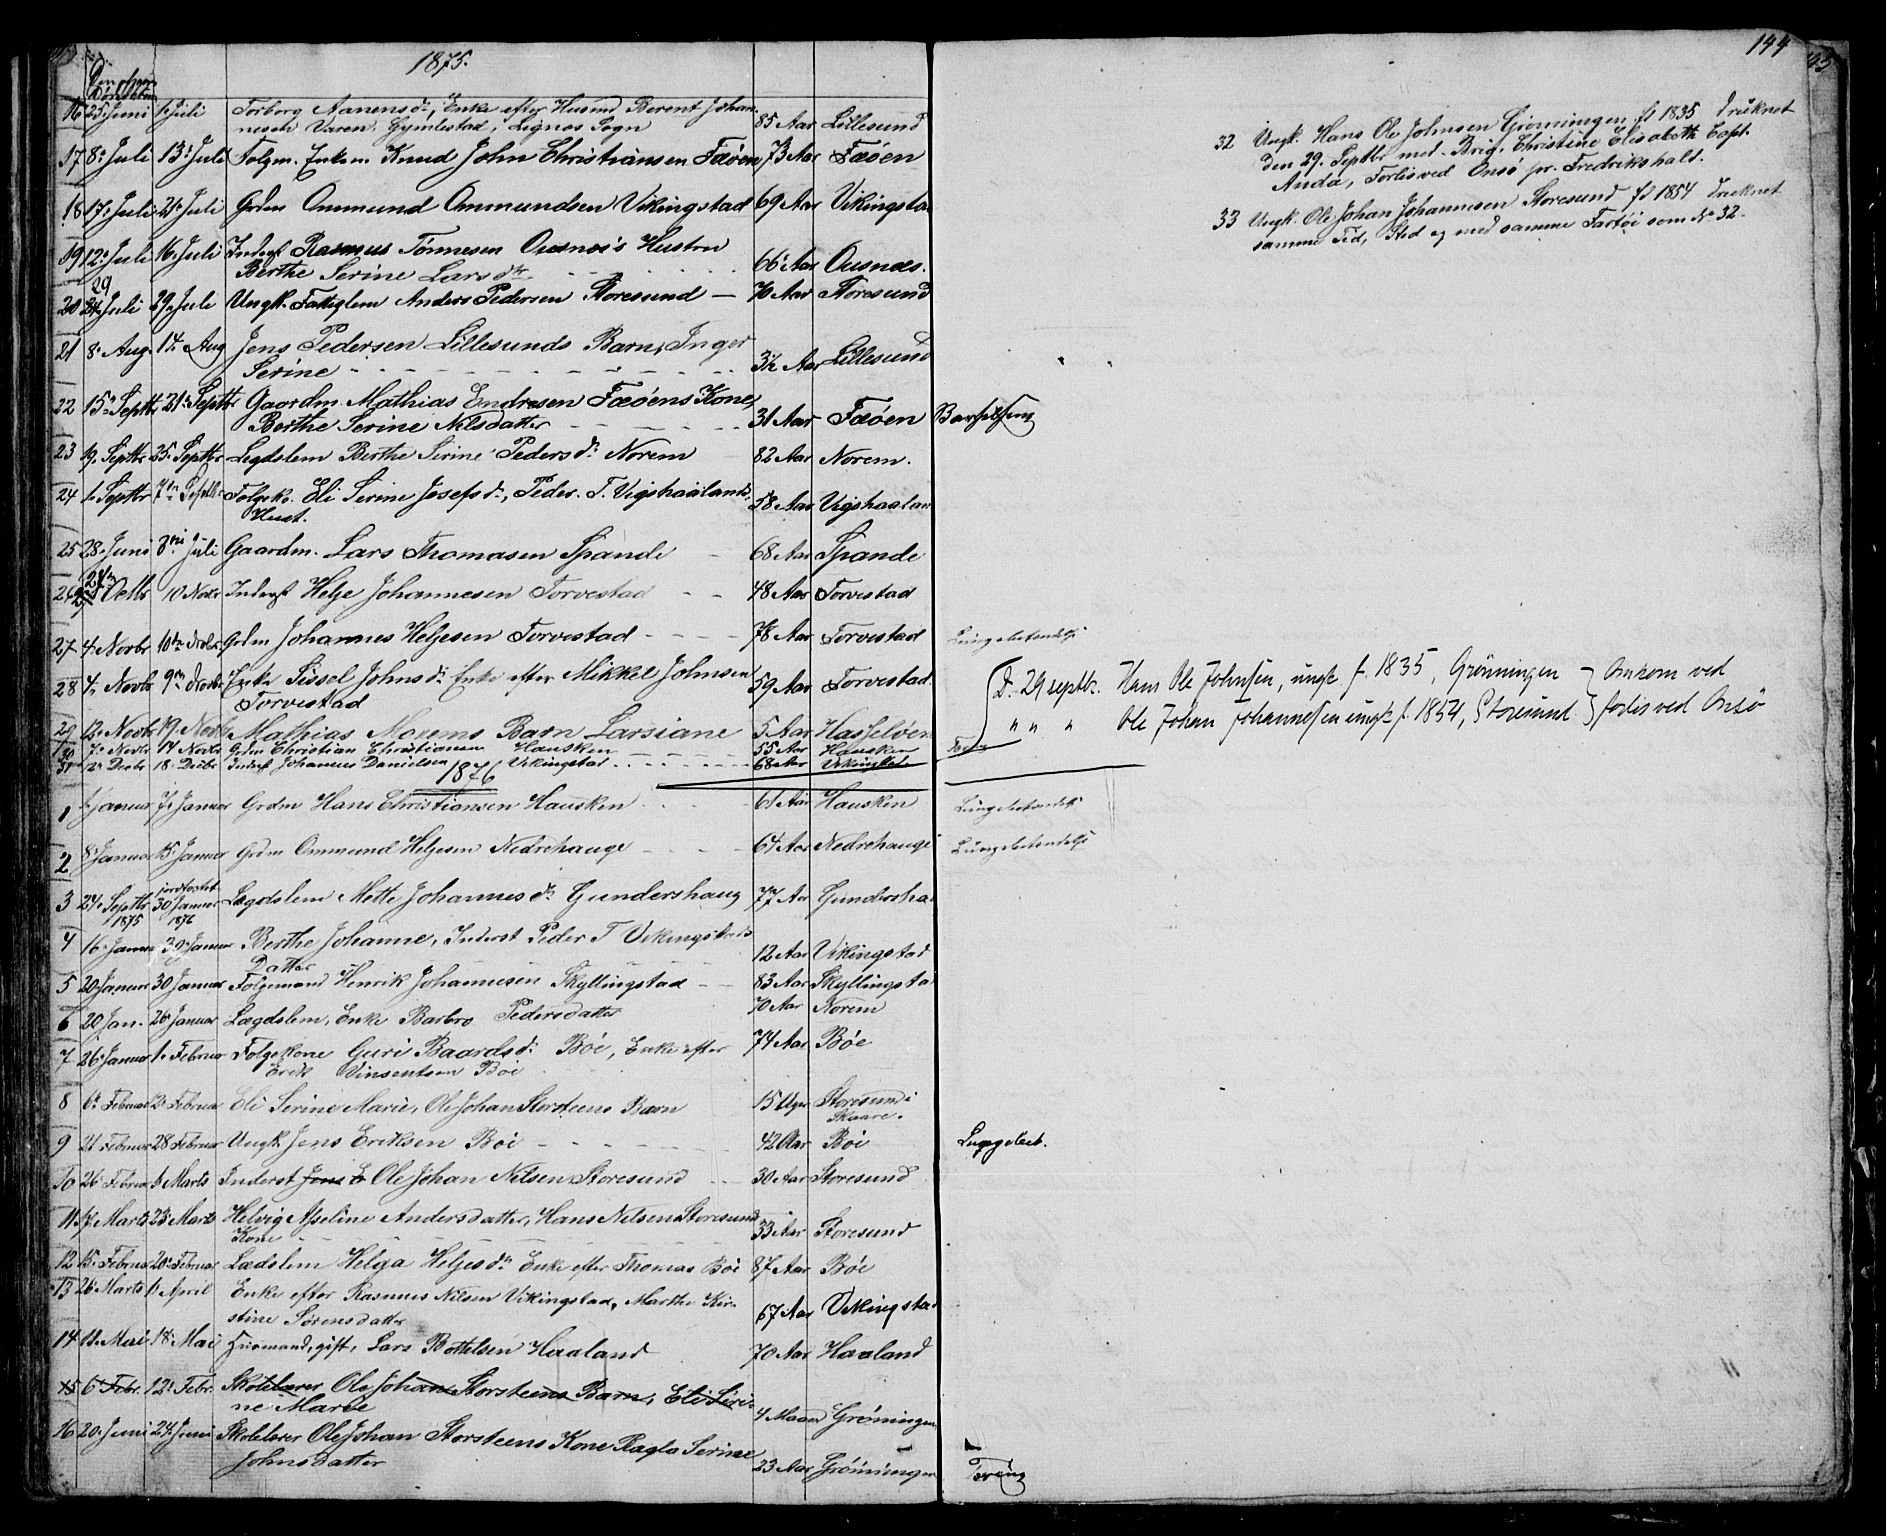 1875.
144
16 25 Juni 1 Juli Torborg Aanensdr, Enke efter Husmd Berent Johan-
nesen Varen, Gymlestad, Lignes Sogn 85 Aar Lillesund
17 8 Juli 13 Juli Folgm. Enkem. Knud John Christiansen Fæøen 73 Aar Fæøen
18 17 Juli 21 Juli Grdm Ommund Ommundsen Vikingstad 69 Aar Vikingstad
19 12 Juli 16 Juli Inderst Rasmus Tönnesen Ousnes's Hustru
Berthe Serine Larsdtr 66 Aar Ousnæs.
29
20 24 Juli 29 Juli Ungk. Fattiglem Anders Pedersen Storesund — 70 Aar Storesund
21 8 Aug. 14 Aug Jens Pedersen Lillesunds Barn, Inger
Serine 3½ Aar Lillesund
22 15 Septbr 21 Septbr Gaardm. Mathias Endresen Fæøens Kone,
Berthe Serine Nilsdatter 31 Aar Fæøen Barselseng
23 19 Septbr 25 Septbr Legdslem Berthe Serine Pedersdr Norem 82 Aar Norem.
24 1 Septbr 7 Septbr Folgeko. Eli Serine Josefsdr, Peder. T. Vigshaalands
Hust. 58 Aar Vigshaalan
25 28 Juni 3 Juli Gaardm. Lars Thomasen Spande 68 Aar Spande
26 27 Octbr 10 Novbr Inderst Helje Johannesen Torvestad 48 Aar Torvestad
27 4 Novbr 10 Novbr Grdm Johannes Heljesen Torvestad 78 Aar Torvestad Lungebetændelse
28 4 Novbr 9 Novbr Enke Sissel Johnsdr Enke efter Mikkel Johnsen
Torvestad 59 Aar Torvestad.
29 12 Novbr 19 Novbr Mathias Morens Barn Larsiane 5 Aar Hasseløen
30 7 Novbr 14 Novbr Grdm Christian Christiansen Hausken 55 Aar Hausken
31 2 Decbr 18 Decbr Inderst Johannes Danielsen Vikingstad 68 Aar Vikingstad
1876
1 1 Januar 7 Januar Grdm Hans Christiansen Hausken 61 Aar Hausken Lungebetændelse
2 8 Januar 15 Januar Grdm Ommund Heljesen Nedrehauge 64 Aar Nedrehauge Lungebetændelse
jordfæstet
3 24 Septbr 30 Januar Lægdslem Mette Johannesdr Gundershaug 77 Aar Gundersha
1875 1876
4 16 Januar 30 Januar Berthe Johanne, Inderst Peder T Vikingstads
Datter 12 Aar Vikingstad
5 20 Januar 30 Januar Folgemand Henrik Johannesen Skyllingstad 83 Aar Skyllingsta
6 20 Jan. 26 Januar Lægdslem, Enke Barbro Pedersdatter 70 Aar Norem
7 26 Januar 1 Februar Folgekone Guri Baardsdr Böe, Enke efter 74 Aar Böe
Erik Vinsentsen Böe
8 6 Februar 12 Februar Eli Serine Marie, Ole Johan Storsteens Barn 15 Uger Storesund i
Skaare.
9 21 Februar 28 Februar Ungk. Jens Eriksen Böe 42 Aar Böe Lungebet.
10 26 Februar 6 Marts Inderst Jens E Ole Johan Nilsen Storesund 30 Aar Storesund
11 17 Marts 23 Marts Helvig Asseline Andersdatter, Hans Nilsen Storesunds
Kone 33 Aar Storesund
12 15 Februar 20 Februar Lædslem Helga Heljesdr Enke efter Thomas Böe 87 Aar Böe
13 26 Marts 1 April Enke efter Rasmus Nilsen Vikingstad, Marthe Kir-
stine Sörensdatter 67 Aar Vikingstad
14 11 Mai 18 Mai Husmand, gift, Lars Bottelsen Haaland 70 Aar Haaland
15 6 Febr. 12 Febr. Skolelærer Ole Johan Storsteens Barn, Eli Seri-
ne Marie 4 Maand Gröningen
16 20 Juni 24 Juni Skolelærer Ole Johan Storsteens Kone Ragla Serine
Johnsdatter 23 Aar Gröningen Tæring
32 Ungk. Hans Ole Johnsen Gröningen fd 1835 druknet
den 29. Septbr med Brig. Christine Elisabeth Capt.
Anda, Forlis ved Onsö pr. Fredrikshald.
33 Ungk. Ole Johan Johannesen Storesund fd 1854 druknet
samme Tid, Sted og med samme Fartöi som No 32.
D. 29 septbr. Hans Ole Johnsen, ungk f. 1835, Grönningen } Omkom ved
" " " Ole Johan Johannesen ungk f. 1854, Storesund } forlis ved Onsö